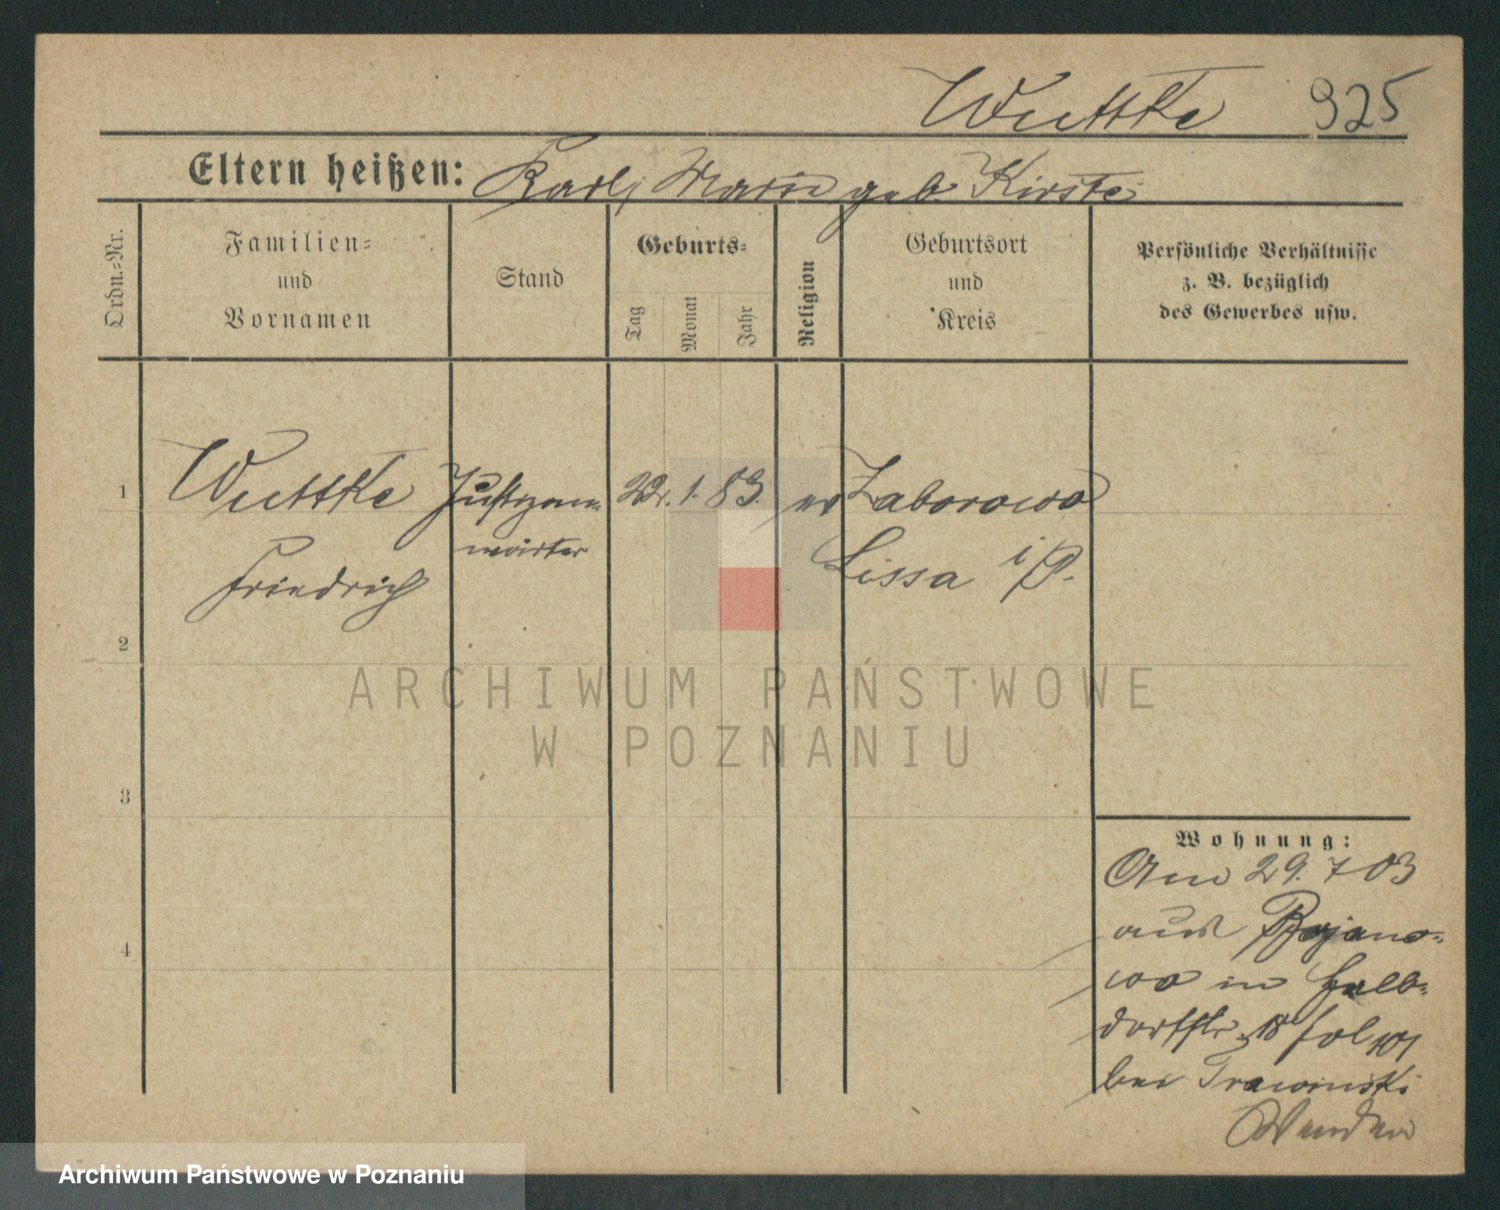 Wuttke 925
Eltern heißen: Karl, Marie geb. Kirste
Ordn.-Nr.
Familien-
und
Vornamen
Stand
Geburts-
Tag
Monat
Jahr
Religion
Geburtsort
und
Kreis
Persönliche Verhältnisse
z. B. bezüglich
des Gewerbes usw.
1 Wuttke Justizan- 22. 1. 83. ev Zaborowo
wärter
Friedrich Lissa i/P.
2
3
4
Wohnung:
Am 29. 7 03
aus Bojano-
wo in Halb-
dorfstr. 18 fol 101
bei Trawinski
Wenden
ARCHIWUM PAŃSTWOWE
W POZNANIU
Archiwum Państwowe w Poznaniu